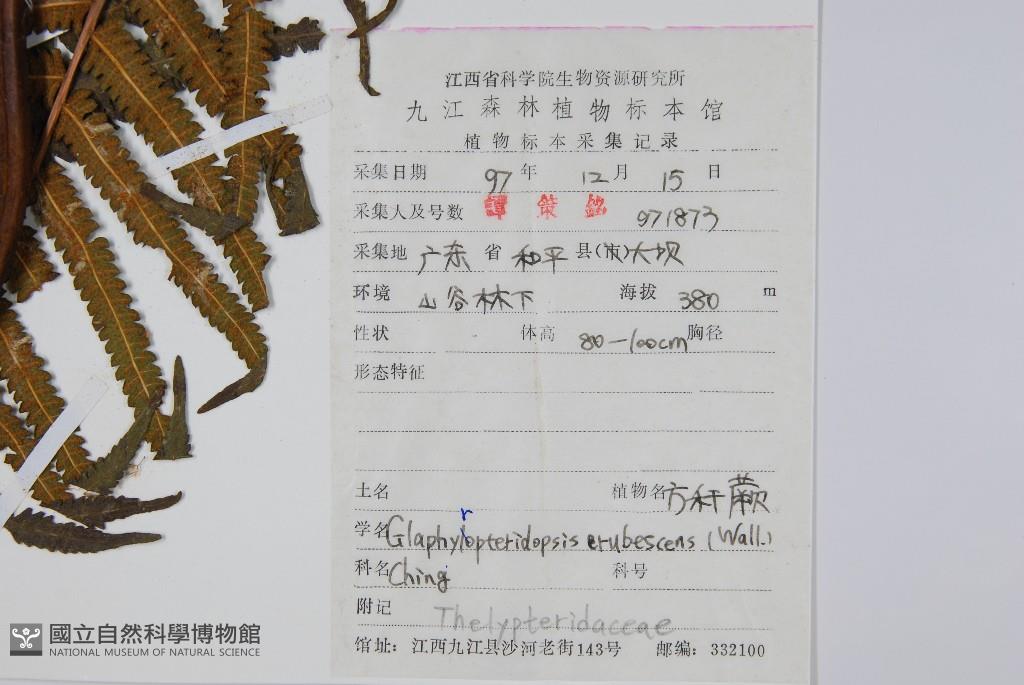 江西省科学院生物资源研究所
九江森林植物标本馆
植物标本采集记录
采集日期 97 年 12 月 15 日
采集人及号数 譚策銘 971873
采集地 广东 省 和平 县(市)大坝
环境 山谷林下 海拔 380 m
性状 体高 80-100cm 胸径
形态特征
土名 植物名 方秆蕨
r
学名 Glaphylopteridopsis erubescens (Wall.)
科名 Ching 科号
附记 Thelypteridaceae
馆址：江西九江县沙河老街143号 邮编：332100
國立自然科學博物館
NATIONAL MUSEUM OF NATURAL SCIENCE